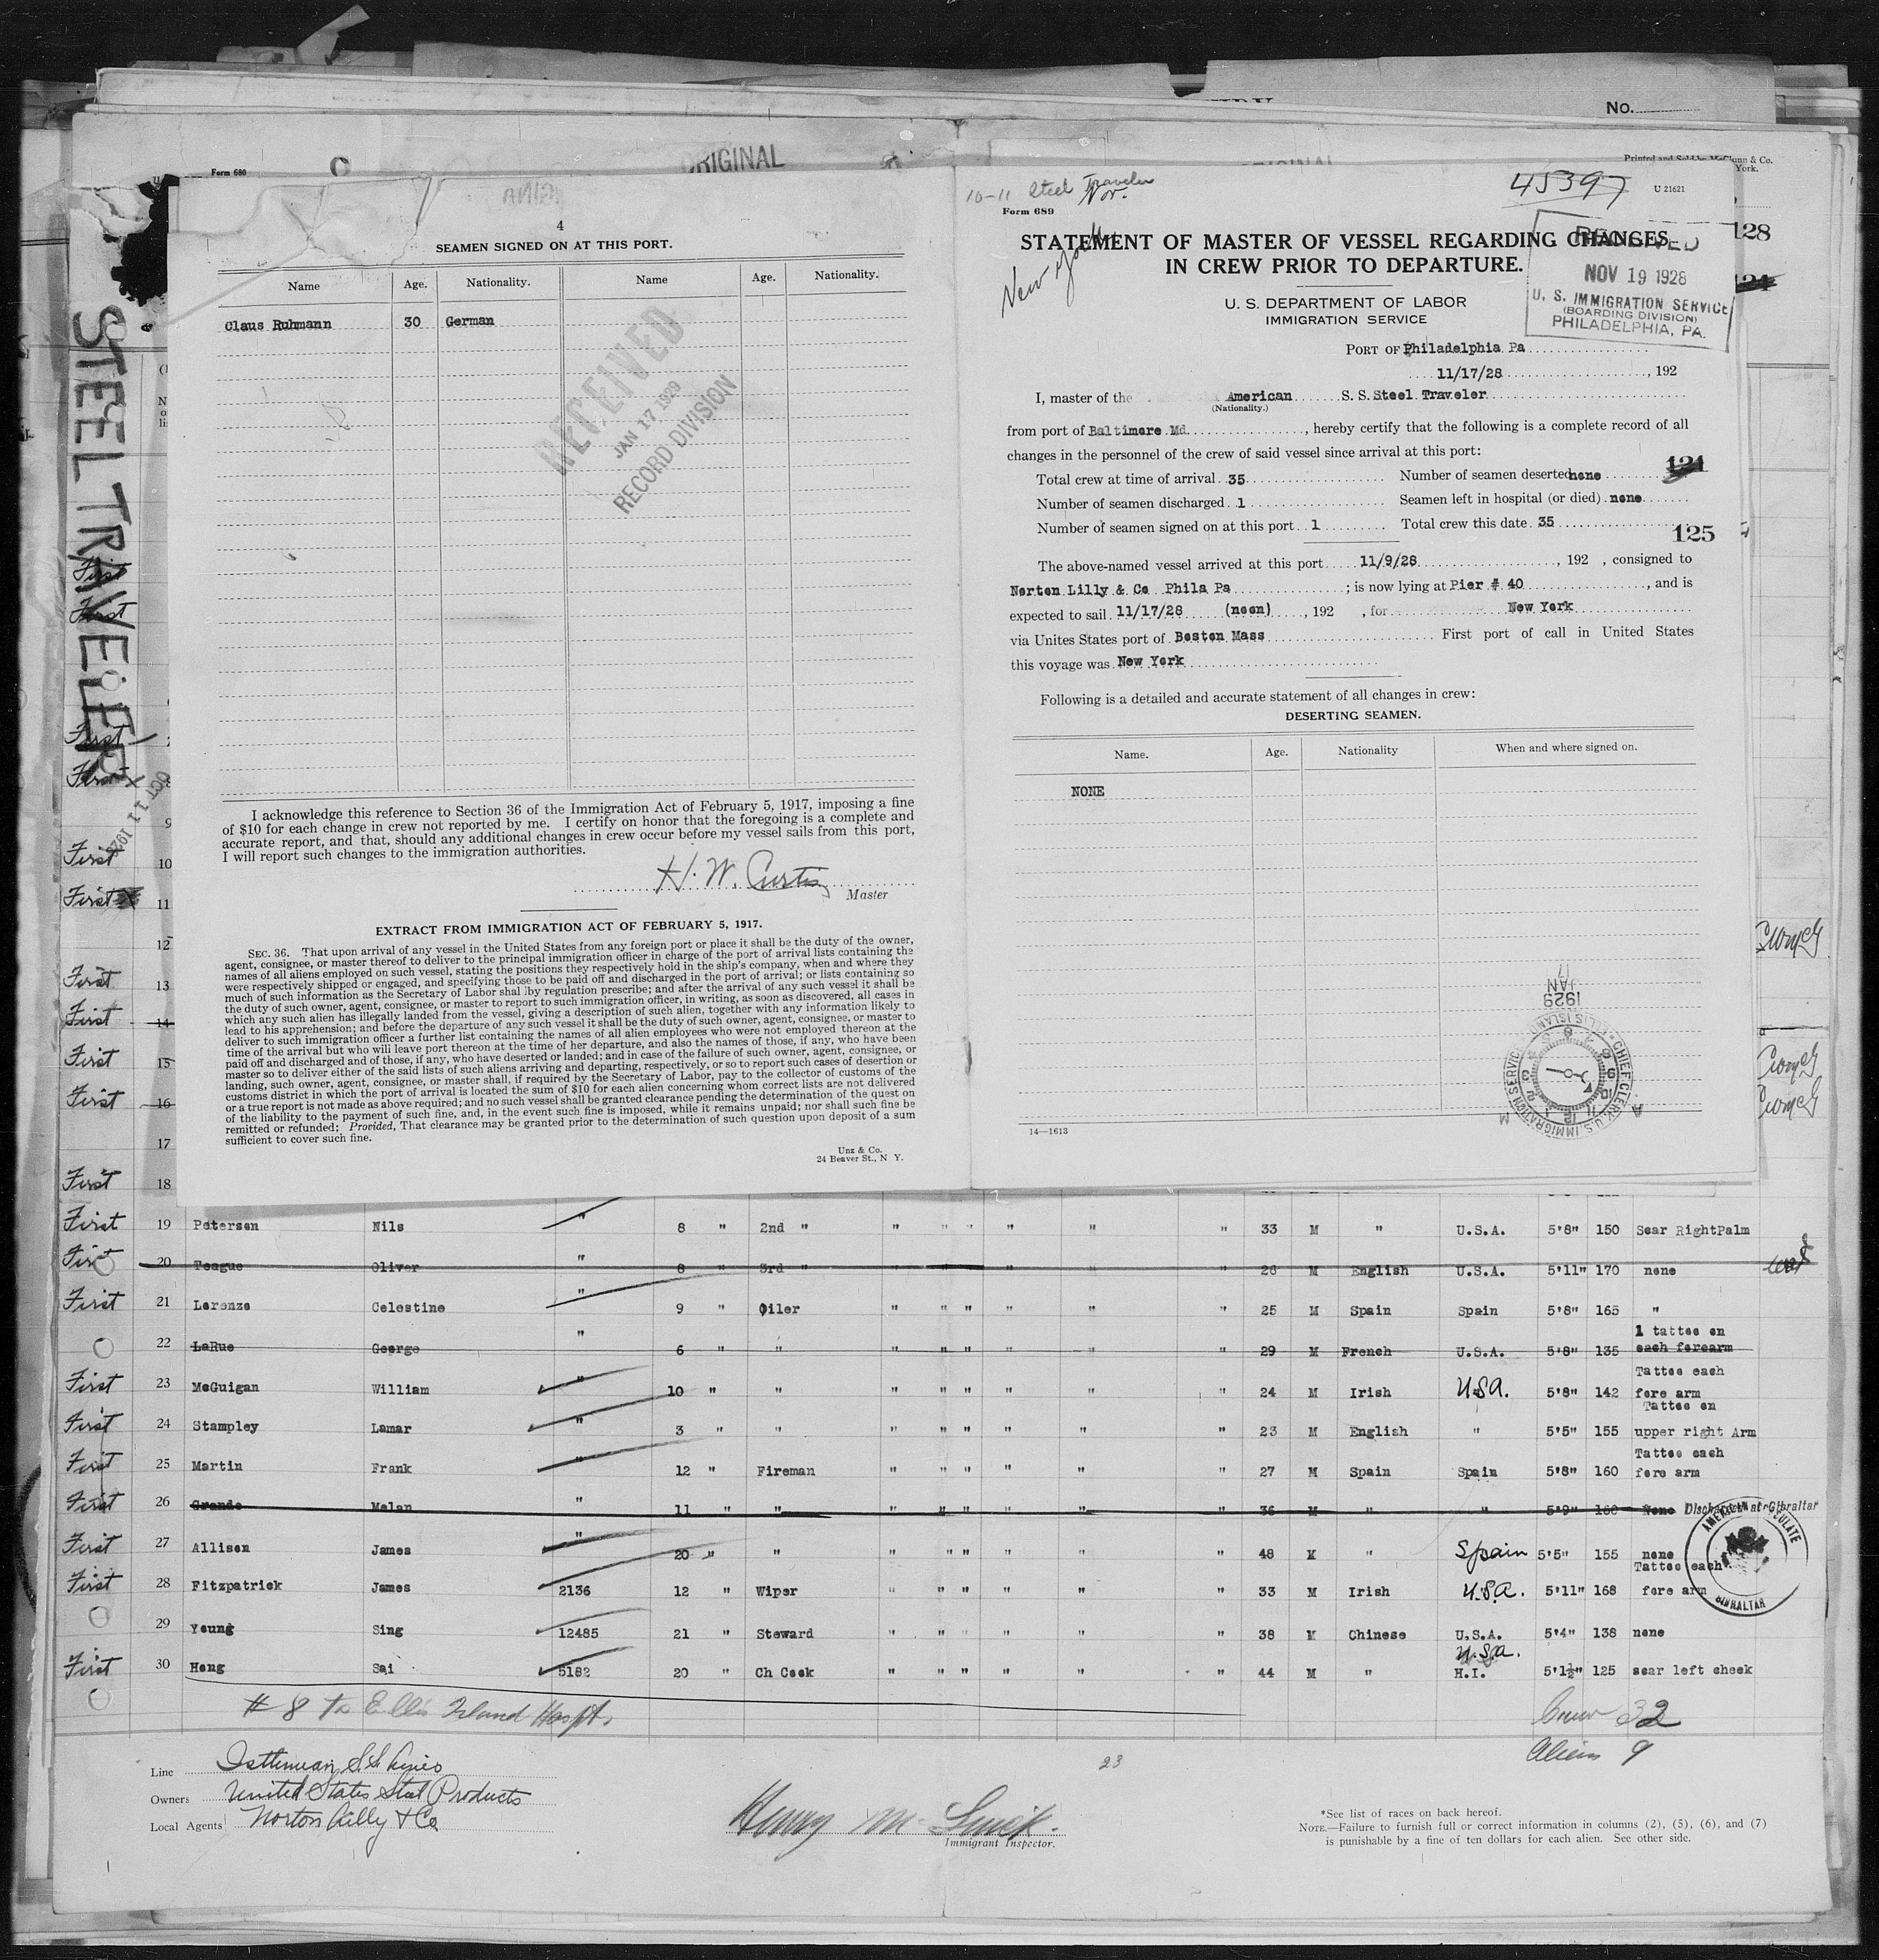 No.
Printed and Sold by McGlunn & Co.
York.
Form 680
ORIGINAL
128
124
STEEL TRAVELER
OCT 11 192
4
SEAMEN SIGNED ON AT THIS PORT.
Name Age. Nationality. Name Age. Nationality.
Claus Ruhmann 30 German
RECEIVED
JAN 17 1929
RECORD DIVISION
I acknowledge this reference to Section 36 of the Immigration Act of February 5, 1917, imposing a fine
of $10 for each change in crew not reported by me. I certify on honor that the foregoing is a complete and
accurate report, and that, should any additional changes in crew occur before my vessel sails from this port,
I will report such changes to the immigration authorities.
H. W. Curtis
Master
EXTRACT FROM IMMIGRATION ACT OF FEBRUARY 5, 1917.
SEC. 36. That upon arrival of any vessel in the United States from any foreign port or place it shall be the duty of the owner,
agent, consignee, or master thereof to deliver to the principal immigration officer in charge of the port of arrival lists containing the
names of all aliens employed on such vessel, stating the positions they respectively hold in the ship's company, when and where they
were respectively shipped or engaged, and specifying those to be paid off and discharged in the port of arrival; or lists containing so
much of such information as the Secretary of Labor shal lby regulation prescribe; and after the arrival of any such vessel it shall be
the duty of such owner, agent, consignee, or master to report to such immigration officer, in writing, as soon as discovered, all cases in
which any such alien has illegally landed from the vessel, giving a description of such alien, together with any information likely to
lead to his apprehension; and before the departure of any such vessel it shall be the duty of such owner, agent, consignee, or master to
deliver to such immigration officer a further list containing the names of all alien employees who were not employed thereon at the
time of the arrival but who will leave port thereon at the time of her departure, and also the names of those, if any, who have been
paid off and discharged and of those, if any, who have deserted or landed; and in case of the failure of such owner, agent, consignee, or
master so to deliver either of the said lists of such aliens arriving and departing, respectively, or so to report such cases of desertion or
landing, such owner, agent, consignee, or master shall, if required by the Secretary of Labor, pay to the collector of customs of the
customs district in which the port of arrival is located the sum of $10 for each alien concerning whom correct lists are not delivered
or a true report is not made as above required; and no such vessel shall be granted clearance pending the determination of the quest on
of the liability to the payment of such fine, and, in the event such fine is imposed, while it remains unpaid; nor shall such fine be
remitted or refunded; Provided, That clearance may be granted prior to the determination of such question upon deposit of a sum
sufficient to cover such fine.
Unz & Co.
24 Beaver St., N Y.
10-11 Steel Traveler
Nor.
45397
U 21621
Form 689
New York
STATEMENT OF MASTER OF VESSEL REGARDING CHANGES
IN CREW PRIOR TO DEPARTURE.
RECEIVED
NOV 19 1928
U. S. IMMIGRATION SERVICE
(BOARDING DIVISION)
PHILADELPHIA, PA.
U. S. DEPARTMENT OF LABOR
IMMIGRATION SERVICE
PORT OF Philadelphia Pa
11/17/28, 192
I, master of the American S. S. Steel Traveler
(Nationality.)
from port of Baltimore Md, hereby certify that the following is a complete record of all
changes in the personnel of the crew of said vessel since arrival at this port:
Total crew at time of arrival 35 Number of seamen deserted none
121
Number of seamen discharged 1 Seamen left in hospital (or died) none
Number of seamen signed on at this port 1 Total crew this date 35
125
The above-named vessel arrived at this port 11/9/28, 192 , consigned to
Norton Lilly & Co Phila Pa; is now lying at Pier # 40, and is
expected to sail 11/17/28 (noon), 192 , for New York
via Unites States port of Boston Mass First port of call in United States
this voyage was New York
Following is a detailed and accurate statement of all changes in crew:
DESERTING SEAMEN.
Name. Age. Nationality When and where signed on.
NONE
JAN 17 1929
CHIEF CLERK, U.S. IMMIGRATION SERVICE ELLIS ISLAND
A M
14—1613
First
First
First
First
9
First 10
First 11
12
First 13
First 14
First 15
First 16
17
First 18
First 19 Petersen Nils " 8 " 2nd " " " " " " " 33 M " U.S.A. 5'8" 150 Scar RightPalm
First 20 Teague Oliver " 8 " 3rd " " " " " " " 26 M English U.S.A. 5'11" 170 none
First 21 Lorenzo Celestino " 9 " Oiler " " " " " " 25 M Spain Spain 5'8" 165 "
22 LaRue George " 6 " " " " " " " " 29 M French U.S.A. 5'8" 135 1 tattoo on each forearm
First 23 McGuigan William " 10 " " " " " " " " 24 M Irish U.S.A. 5'8" 142 Tattoo each fore arm
First 24 Stampley Lamar " 3 " " " " " " " " 23 M English " 5'5" 155 Tattoo on upper right Arm
First 25 Martin Frank " 12 " Fireman " " " " " " 27 M Spain Spain 5'8" 160 Tattoo each fore arm
First 26 Grande Melan " 11 " " " " " " " " 36 M " " 5'9" 160 None Discharged at Gibraltar
First 27 Allison James " 20 " " " " " " " " 48 M " Spain 5'5" 155 none
First 28 Fitzpatrick James 2136 12 " Wiper " " " " " " 33 M Irish U.S.A. 5'11" 168 Tattoo each fore arm
29 Young Sing 12485 21 " Steward " " " " " " 38 M Chinese U.S.A. 5'4" 138 none
First 30 Hong Sai 5182 20 " Ch Cook " " " " " " 44 M " U.S.A. H.I. 5'1½" 125 scar left cheek
AMERICAN CONSULATE
GIBRALTAR
# 8 to Ellis Island Hospt.
Crew 32
Aliens 9
23
Line Isthmian S.S. Lines
Owners United States Steel Products
Local Agents Norton Lilly & Co
Immigrant Inspector.
*See list of races on back hereof.
NOTE.—Failure to furnish full or correct information in columns (2), (5), (6), and (7)
is punishable by a fine of ten dollars for each alien. See other side.